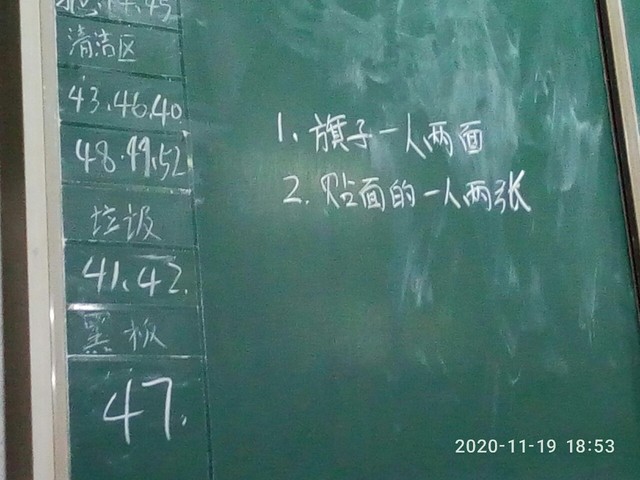 清洁区
43.46.40
48.49.52
垃圾
41.42.
黑板
47.
1. 旗子一人两面
2. 贴面的一人两张
2020-11-19 18:53